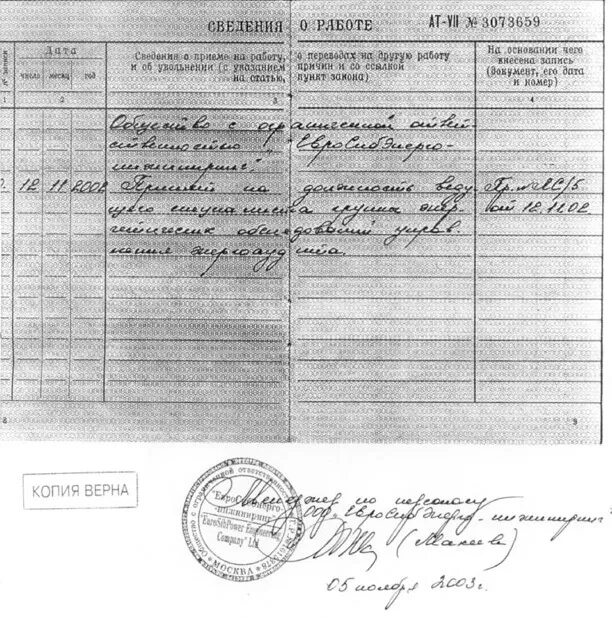 СВЕДЕНИЯ О РАБОТЕ
АТ-VII № 3073659
№ записи
Дата
число месяц год
Сведения о приеме на работу, о переводах на другую работу
и об увольнении (с указанием причин и со ссылкой
на статью, пункт закона)
На основании чего
внесена запись
(документ, его дата
и номер)
1 2 3 4
Общество с ограниченной ответ-
ственностью "ЕвроСибЭнерго-
инжиниринг".
12 11 2002 Принят на должность веду- Пр. № ЛС/5
щего специалиста группы энер- от 12.11.02
гетических обследований управ-
ления энергоаудита.
8 9
КОПИЯ ВЕРНА
Общество с ограниченной ответственностью
"ЕвроСибЭнерго
-инжиниринг"
"EuroSibPower Engineering
Company" Ltd.
МОСКВА
Менеджер по персоналу
ООО "ЕвроСибЭнерго-инжиниринг"
05 ноября 2003г.